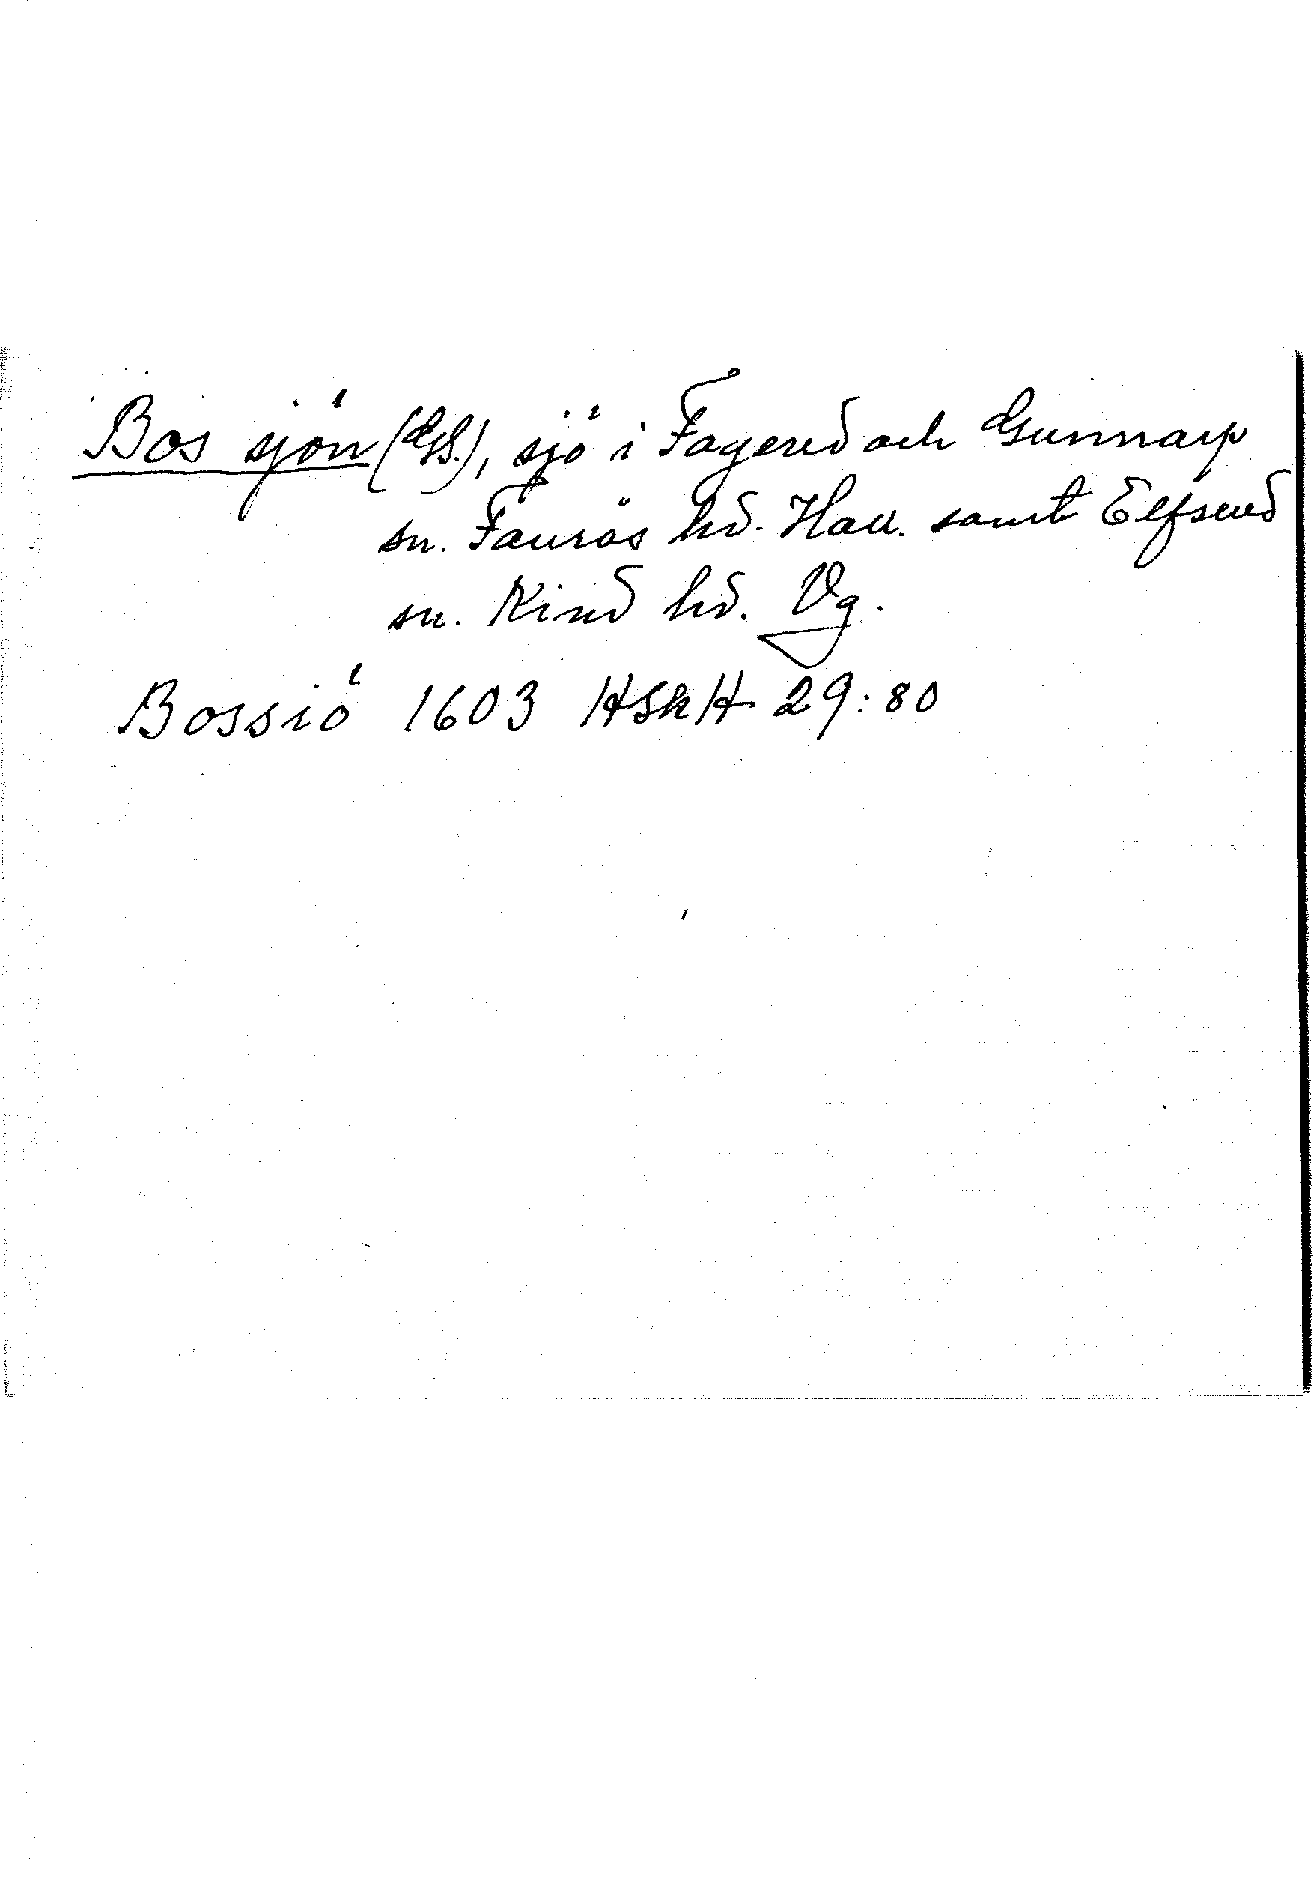 Bos sjön (GS.), sjö i Fagered och Gunnarp
sn. Faurås hd. Hall. samt Elfsered
sn. Kind hd. Vg.
Bossiö 1603 HSkH 29:80